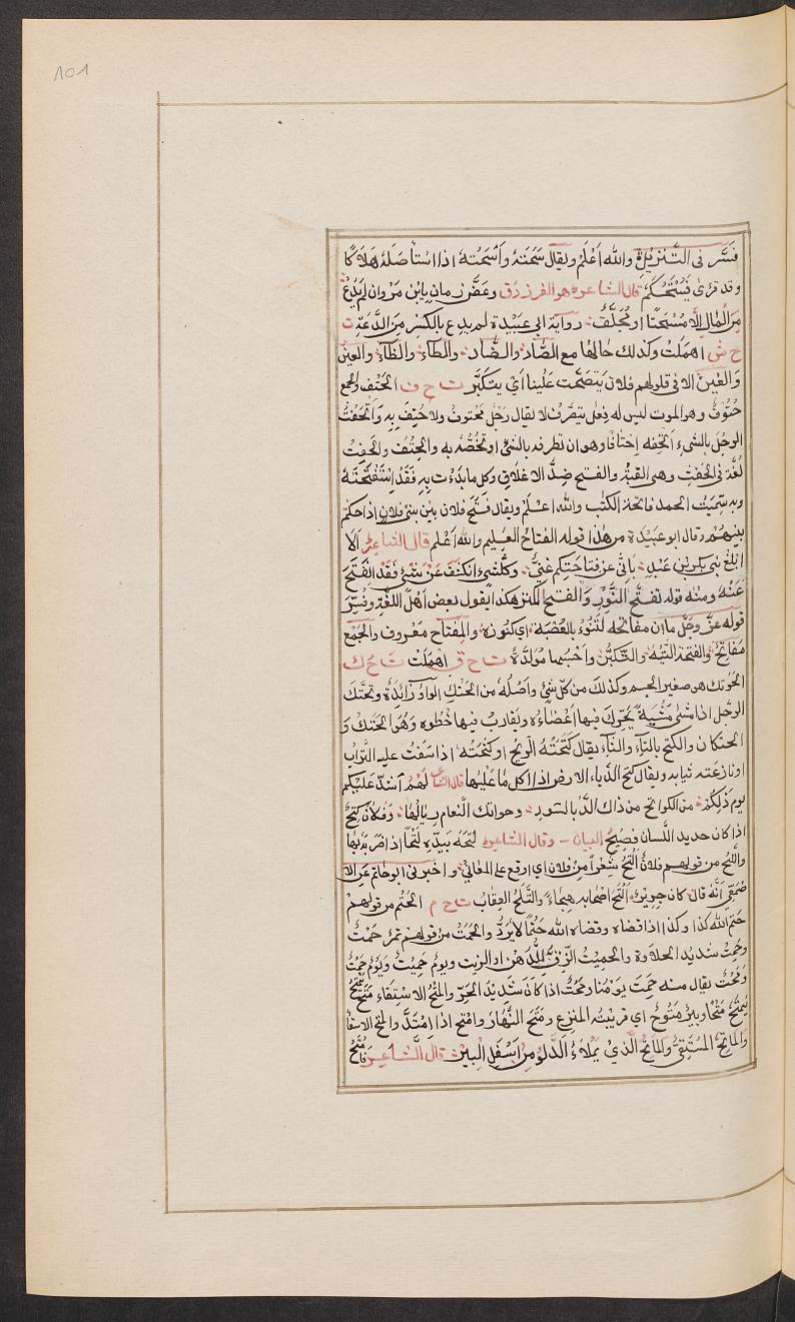 101
فسّر فى التنزيل والله اَعْلَم ويقال سَحَتَهُ وَاَسْحَتهُ اذا استأصَلَهُ هَلاَكًا
وقد قرئ فَيُسْحِتَكُم قال الشاعر هو الفرزدق وعَضّ زمانٍ يابنَ مَروان لم يَدَعْ
مِنَ الْمالِ الّا مُسْحَتًا اومُجَلَّفُ رواية ابى عبيدة لم يدِع بالكسر مِنَ الدَّعَةِ ت
ح ش اهمَلَت وكذلك حَالُها مع الصّاد والضّاد والطاء والظآء والعين
وَالغين الا فى قولهم فلان يَتصَحَّت عَلَينا اَىْ يتكَبَّر ت ح ف الحَتْف والجمع
حُتُوفٌ وهو الموت ليس له فِعْل يتصَرَّف لا يقال رَجُل محتوفٌ ولا حُتِفَ بِه وَاَتْحَفْتُ
الرجُلَ بالشىء اتحفه اِتحافًا وهو ان تطرفه بالشئ او تخُصّه به والحتُف والحَفِتُ
لُغَة فى الحَفِث وهى القبّة والفتح ضِدُّ الاغلاق وكل ما بَدَءْت بِه فَقَدْ اِسْتَفْتَحْتَهُ
وبه سُمِّيَت الحمد فاتحة الكتب والله اعلم ويقال فَتَح فلان بَيْن بنى فلانٍ اذا حكم
بينهُمْ وقال ابو عبَيْدة من هذا قوله الفتاح العليم والله اَعْلم قال الشاعر اَلا
اَبْلِغ بنى بكر بْن عَبْدٍ بِاَنّى عن فتاحَتِكم غَنِىُّ وكلّ شئ انكشَفَ عَنْ شئ فَقَدْ انفَتَحَ
عَنْهُ ومنه قوله تفتّح النَّوْرِ وَالفتح الكنز هكذا يقول بعض اَهْل اللُّغَة وفُسِّرَ
قوله عزّ وجل ما ان مفاتحه لتَنُوءُ بالعُصْبَة اى كنوزه والمِفْتاح معروف والجَمْع
مَفَاتِحُ والفتحَة التيه والتَّكَبُّرُ واَحْسبُها مُولَّدةً ت ح ق اهمَلَت ت ح ك
الحَوتك هو صغير الجسم وكذلك من كلّ شئ وَاَصْلُه من الحَتْكِ الواوُ زائدةٌ وتحتَّك
الرجُل اذا مشى مِشْيَةً يُحَرِّك فيها اَعْضاءُه ويقارب فيها خَطْوه وَهُوَ الحَتك وَ
الحتكان والكتح بالتآء والثآء يقال كَتَحَتْهُ الريح او كَثحَتْهُ اذا سَفَتْ عليه التُرابَ
او نازعَته ثيابه ويقال كتح الدَّباء الارض اذا اكل ما عَلَيْها قال الشاعر لَهُمْ اَشَدّ عَلَيكم
يوم ذَلِكُمُ من الكواتح من ذاك الدَّبا السُودِ وحواتك النّعام رِيَالُهُا وَفُلَانٌ كَتِحٌ
اذا كان حديد اللسان فصِيحُ البيان وقال الشاعر لَتَحَهُ بيَدِهِ لَتْحًا اذا ضربه بها
واللتح من قولهم فلانٌ اَلْتَحُ شِعْراً مِنْ فلان اى اوقع على المعَانىْ واخبرنى ابو حاتم عَنِ الا
صْمَعِى اَنَّهُ قال كان جريرٌ اَلْتَحَ اصحابه هِجاءً والتَّلْحُ العِقابُ ت ح م الحَتْم من قولهمْ
حتم الله كذا وكذا اذا قضاه وقضاه الله حَتْمًا لا يُرَدُّ والحَمْتُ من قولهم تمر حَمْتٌ
وحَمِتٌ شديد الحلاوة والحميتُ الزِّقُّ للدُّهْن او الزيت ويومٌ حَمِيتٌ ويَوْمٌ حَمْتٌ
وَمَحْتٌ يقال منه حَمِتَ يَوْمُنا ومَحُتَ اذا كانَ شَدِيْدَ الحَرِّ والمَتْحُ الاستِقَاء مَتَح يمتَحُ
يَمتَحُ مَتْحًا وبئر مَتُوحٌ اى قَرِيْبَة المنزع ومَتَح النَّهَارُ وامتح اذا اِمْتَدَّ والمتح الاستقا
والماتحُ المُستَقِىْ وَالمائح الّذِىْ يَمْلاءُ الدَّلْوَ مِنْ اَسْفَلِ البِئر قال الشاعر فَامْتَحُ